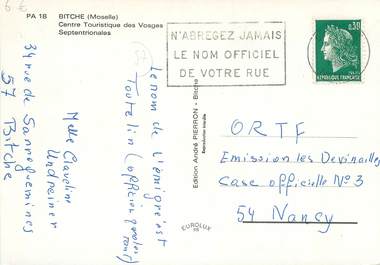 6 €
PA 18 BITCHE (Moselle)
Centre Touristique des Vosges
Septentrionales
N'ABREGEZ JAMAIS
LE NOM OFFICIEL
DE VOTRE RUE
0,30
REPUBLIQUE FRANÇAISE
Le nom de l'émigré est
Toutelin (officier
Melle Claveline
Undreiner
34 rue de Sarreguemines
57 Bitche
Edition André PIERRON - Bitche
Reproduction interdite
EUROLUX
ORTF
Emission les Devinailles
Case officielle N° 3
54 Nancy